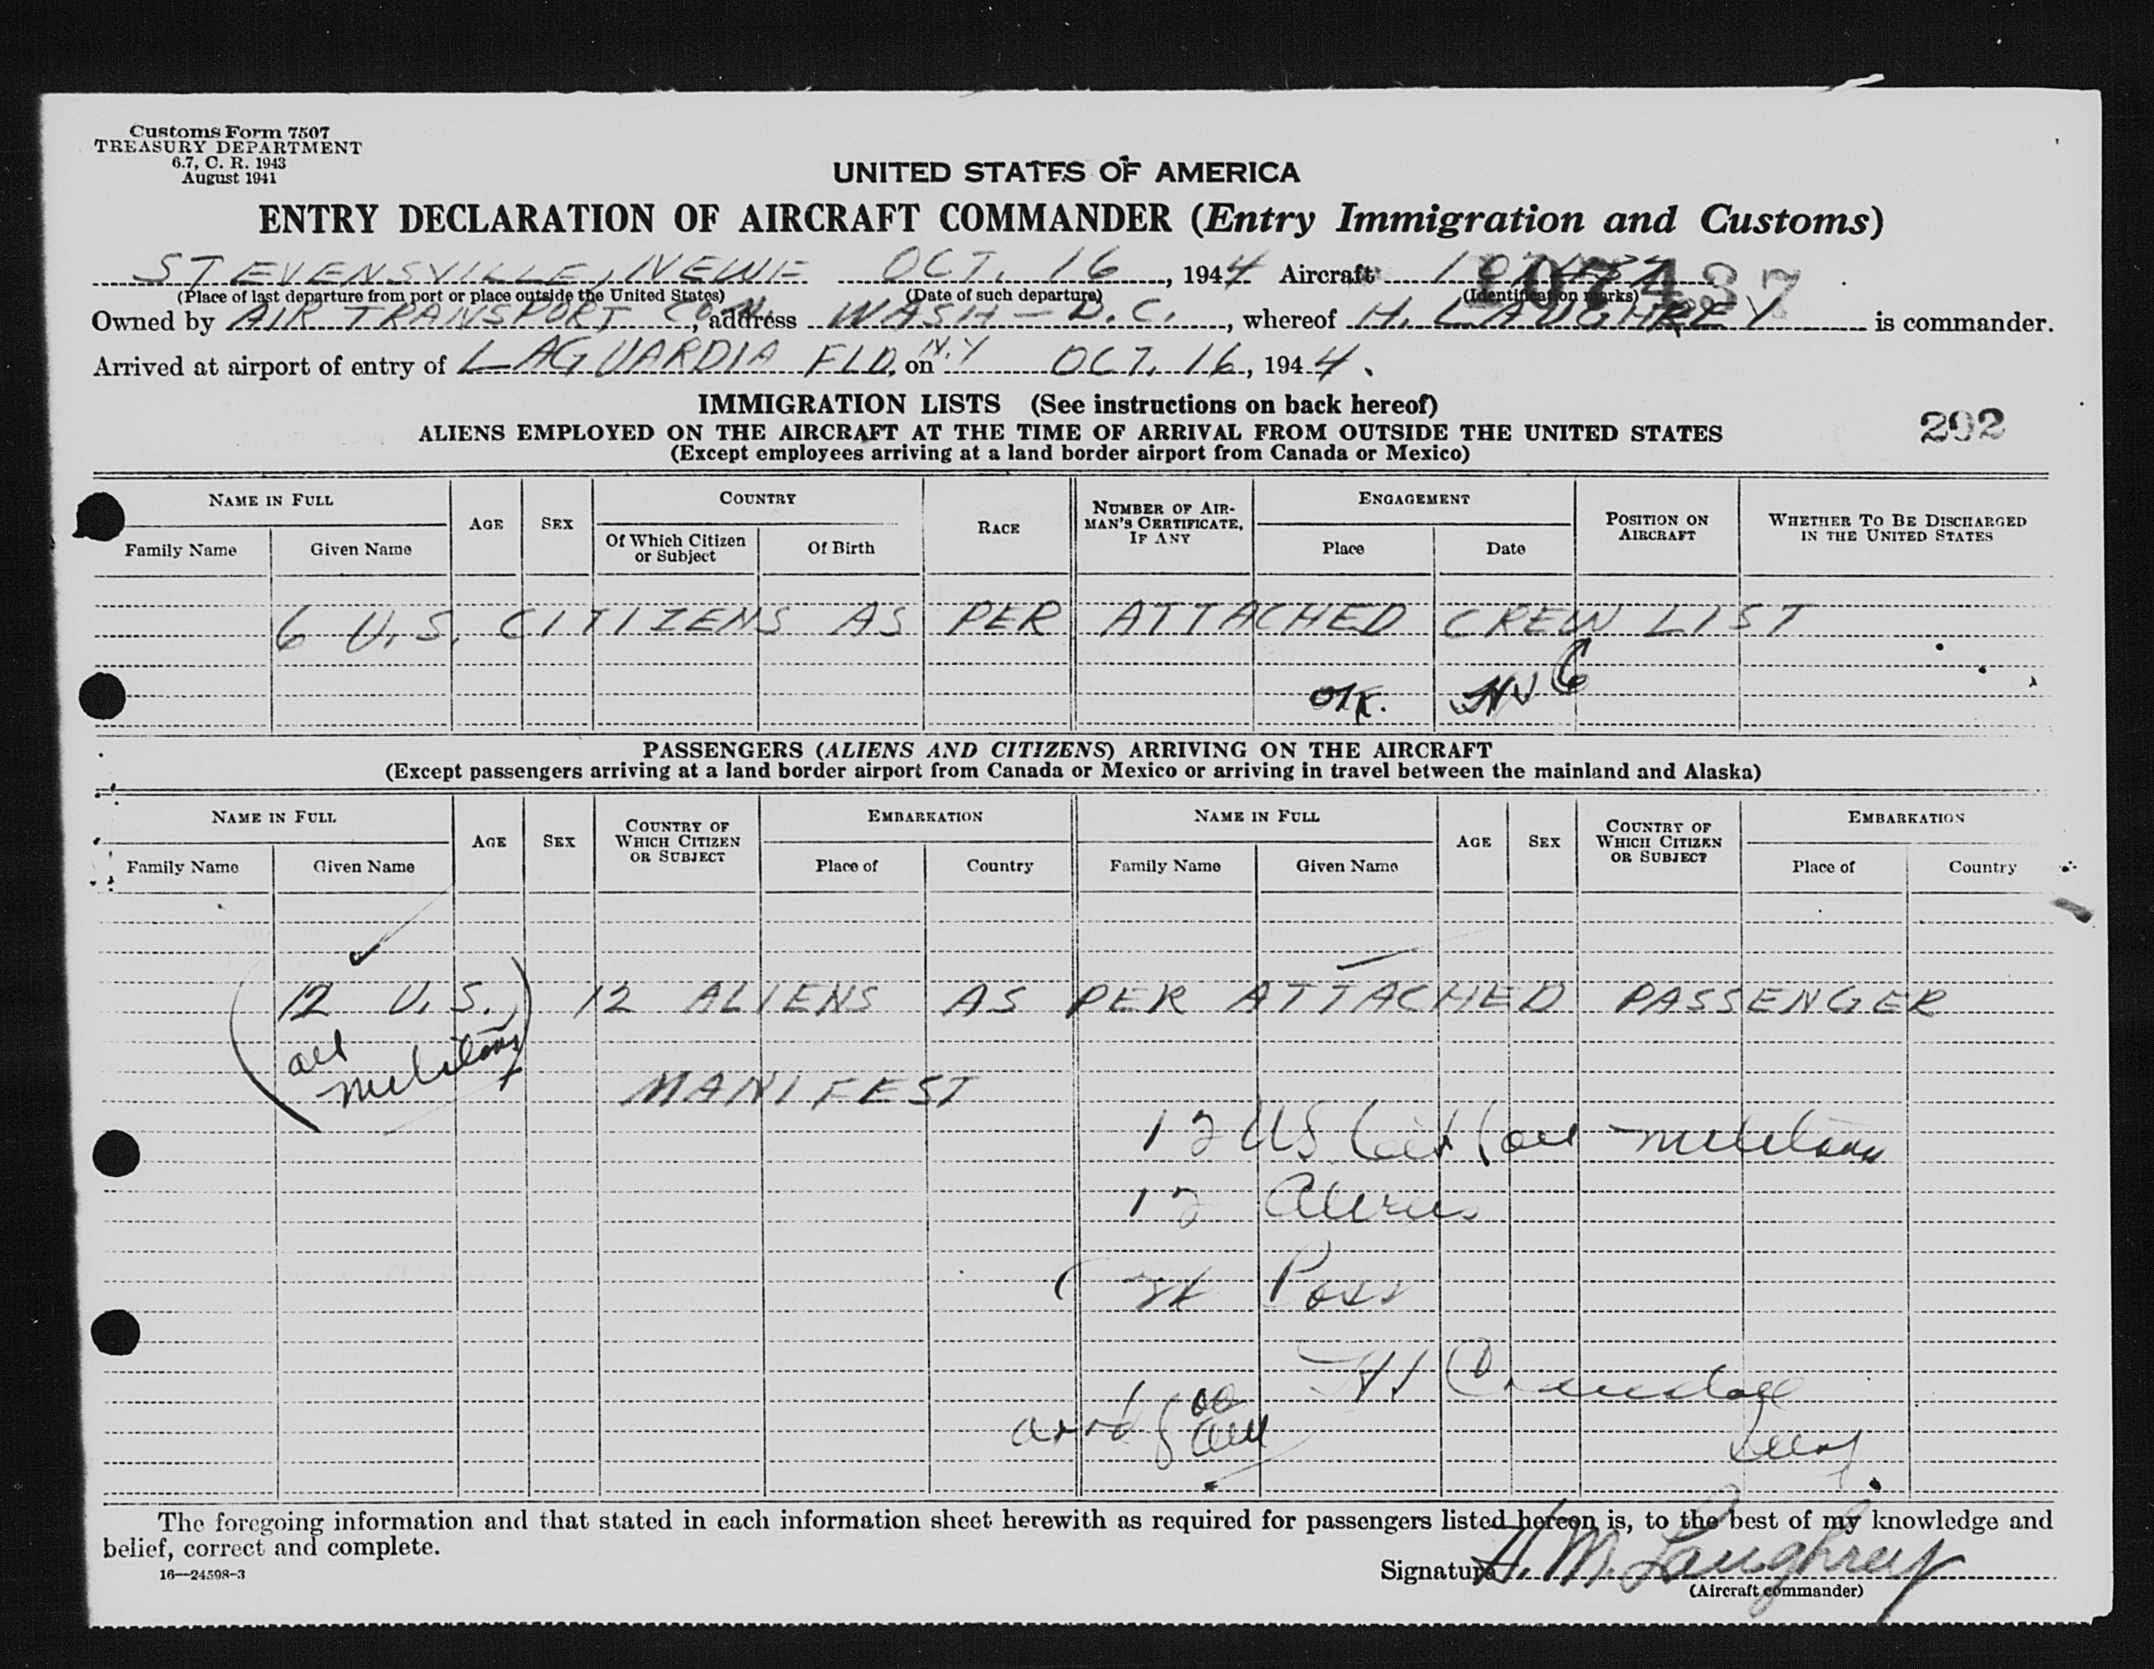 Customs Form 7507
TREASURY DEPARTMENT
6.7, C. R. 1943
August 1941
UNITED STATES OF AMERICA
ENTRY DECLARATION OF AIRCRAFT COMMANDER (Entry Immigration and Customs)
STEVENSVILLE, NEWF OCT. 16, 1944 Aircraft 107437
(Place of last departure from port or place outside the United States) (Date of such departure) (Identification marks)
Owned by AIR TRANSPORT COM., address WASH - D.C., whereof H. LAUGHREY is commander.
Arrived at airport of entry of LAGUARDIA FLD. N.Y on OCT. 16, 1944.
IMMIGRATION LISTS (See instructions on back hereof)
ALIENS EMPLOYED ON THE AIRCRAFT AT THE TIME OF ARRIVAL FROM OUTSIDE THE UNITED STATES
202
(Except employees arriving at a land border airport from Canada or Mexico)
NAME IN FULL
Family Name Given Name
AGE SEX
COUNTRY
Of Which Citizen or Subject Of Birth
RACE
NUMBER OF AIRMAN'S CERTIFICATE, IF ANY
ENGAGEMENT
Place Date
POSITION ON AIRCRAFT
WHETHER TO BE DISCHARGED IN THE UNITED STATES
6 U.S. CITIZENS AS PER ATTACHED CREW LIST
OK.
PASSENGERS (ALIENS AND CITIZENS) ARRIVING ON THE AIRCRAFT
(Except passengers arriving at a land border airport from Canada or Mexico or arriving in travel between the mainland and Alaska)
NAME IN FULL
Family Name Given Name
AGE SEX
COUNTRY OF WHICH CITIZEN OR SUBJECT
EMBARKATION
Place of Country
NAME IN FULL
Family Name Given Name
AGE SEX
COUNTRY OF WHICH CITIZEN OR SUBJECT
EMBARKATION
Place of Country
(12 U.S.) 12 ALIENS AS PER ATTACHED PASSENGER
all military
MANIFEST
12 US Cit (all military
12 Aliens
24 Pass
arrd 8 00 AM
Insp
The foregoing information and that stated in each information sheet herewith as required for passengers listed hereon is, to the best of my knowledge and
belief, correct and complete.
16—24598-3
Signature H. M. Laughrey
(Aircraft commander)